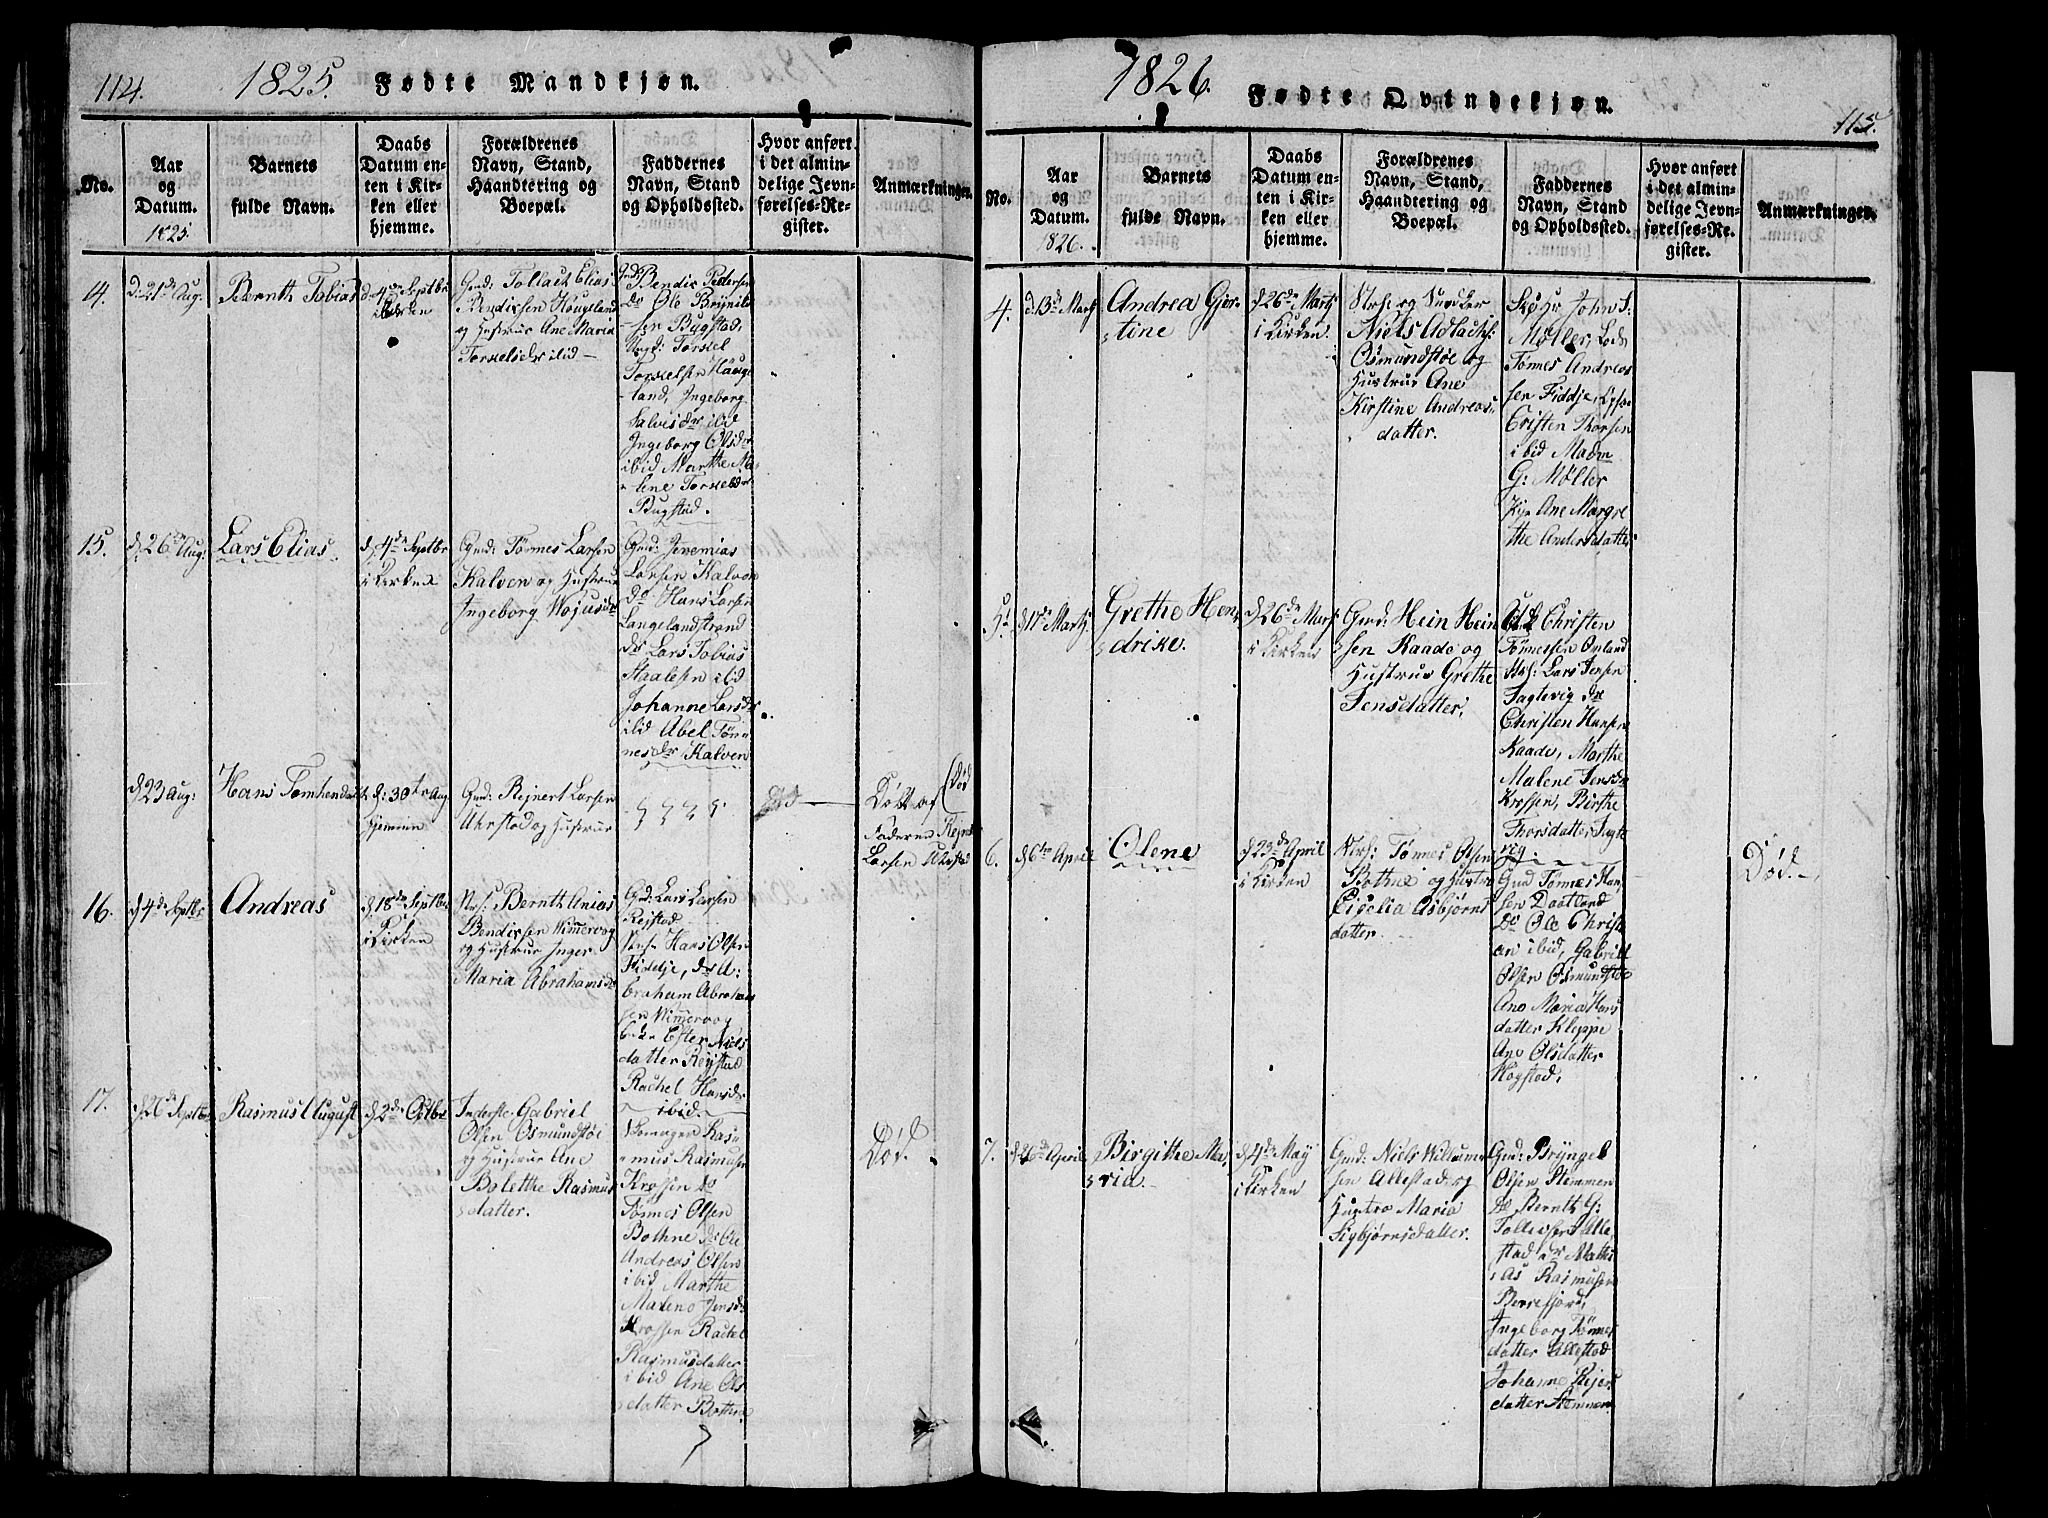 114.
1825. Fødte Mandkjøn.
No.
Aar
og
Datum.
1825
Barnets
fulde Navn.
Daabs
Datum en-
ten i Kir-
ken eller
hjemme.
Forældrenes
Navn, Stand,
Haandtering og
Boepæl.
Faddernes
Navn, Stand
og Opholdssted.
Hvor anført
i det almin-
delige Jevn-
førelses-Re-
gister.
Anmærkninger.
14.
d. 21de Aug.
Bernth Tobias
d. 4de Septbr
i Kirken
Gmd: Tollach Elias
Bendixsen Hougland
og Hustrue Ane Maria
Torkelsdr ibid
Gmd: Bendix Pedersen
do Ole Brynils
sen Bugstad,
Ungk: Torkel
Torkelsen Haug-
land, Ingeborg
Salvisdr ibid
Ingeborg Olsdr
ibid Marthe Ma-
lene Torkelsdr
Bugstad.
15.
d. 26de Aug:
Lars Elias.
d. 4de Septbr
i Kirken
Gmd: Tönnes Larsen
Kalven og Hustrue
Ingeborg
Gmd: Jeremias
Larsen Kalven
do Hans Larsen
Langelandstrand
do Lars Tobias
Staalesen ibid
Johanne Larsdr
ibid Abel Tön-
nesdr Kalven
d. 23 Aug:
Hans
d: 30te Aug
hjemme
Gmd: Rejnert Larsen
Uhrstad og Hustrue
Döbt af
Faderen Rejnert
Larsen Uhrstad
(Död
16.
d. 4de Septbr
Andreas
d. 18de Septbr
i Kirken
Bernth Anias
Bendixsen Wimmervog
og Hustrue Inger
Maria Abrahamsdr
Gmd: Lars Larsen
Rejstad
Hans Olsen
Fiddje, do A:
braham Abraham
sen Wimmervog
Ester Niels
datter Rejstad
Rachel Hansdr
ibid.
17.
d. 26de Septbr
Rasmus August
d. 2de Octbr
Inderste Gabriel
Olsen Osmundstøe
og Hustrue Ane
Bolethe Rasmus
datter.
Ras-
mus Rasmusen
Krossen do
Tönnes Olsen
Bothne do Ole
Andreas Olsen
ibid Marthe
Malene Jensdr
Krossen Rachel
Rasmusdatter
ibid Ane Ols
datter Bothne
Död.
1826. Fødte Qvindekjøn.
115.
No.
Aar
og
Datum.
1826.
Barnets
fulde Navn.
Daabs
Datum en-
ten i Kir-
ken eller
hjemme.
Forældrenes
Navn, Stand,
Haandtering og
Boepæl.
Faddernes
Navn, Stand
og Opholdssted.
Hvor anført
i det almin-
delige Jevn-
førelses-Re-
gister.
Anmærkninger.
4.
d. 13de Marts
Andrea Gjer-
tine
d. 26de Marts
i Kirken
og Snedker
Niels Adlachs:
Osmundstøe og
Hustrue Ane
Kirstine Andreas
datter.
John S:
Møller, Lods
Tönnes Andreas
sen Fiddje,
Cristen Thorsen
ibid Madm
G: Møller
Ane Margre
the Andersdatter
5.
d. 17de Marts
Grethe Hen
drike.
d. 26de Mars
i Kirken
Gmd: Hein Hein
sen Kaade og
Hustrue Grethe
Jensdatter.
Christen
Tönnessen Omland
Lars Jensen
do
Christen Hansen
Kaade, Marthe
Malene Jensdr
Krossen, Birthe
Thorsdatter
6.
d. 6te April
Olene
d. 23de April
i Kirken
Tönnes Olsen
Bothne og Hustro
Cicelia Asbjörns
datter
Gmd Tönnes Han
sen Daatland
Do Ole Christ
an ibid, Gabriel
Olsen Osmundstøe
Ane Maria Hans
datter Kleppe
Ane Olsdatter
Rogstad.
Död.
7.
d. 26de April
Birgithe Ma
ria.
d. 4de May
i Kirken
Gmd: Niels Willum
sen Allestad og
Hustro Maria
Sigbjörnsdatter.
Gmd: Bryngel
Olsen Stemmen
do Bernth G:
Tollessen Alle
stad do Matth
ias Rasmusen
Berrefjord,
Ingeborg Tönnes
datter Allestad
Johanne Rejers
datter Stemmen